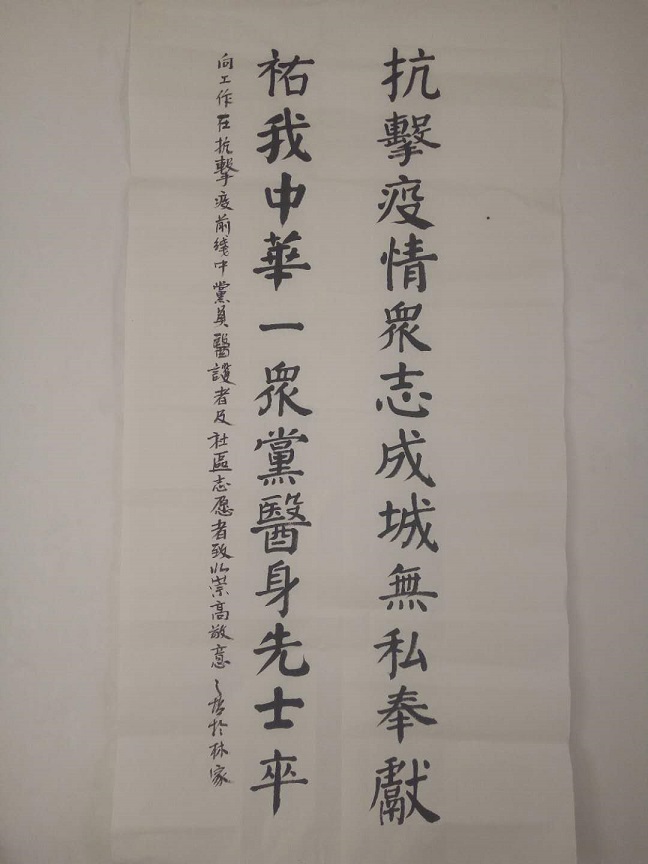 抗擊疫情衆志成城無私奉獻
祐我中華一衆黨醫身先士卒
向工作在抗擊疫前线中黨員醫護者及社區志愿者致以崇高敬意 於林家